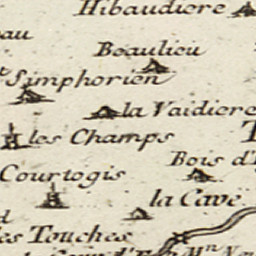 Hibaudiere
au
Beaulieu
Simphorien
la Vaidiere
les Champs
Bois d'
Courtogis
la Cave
es Touches